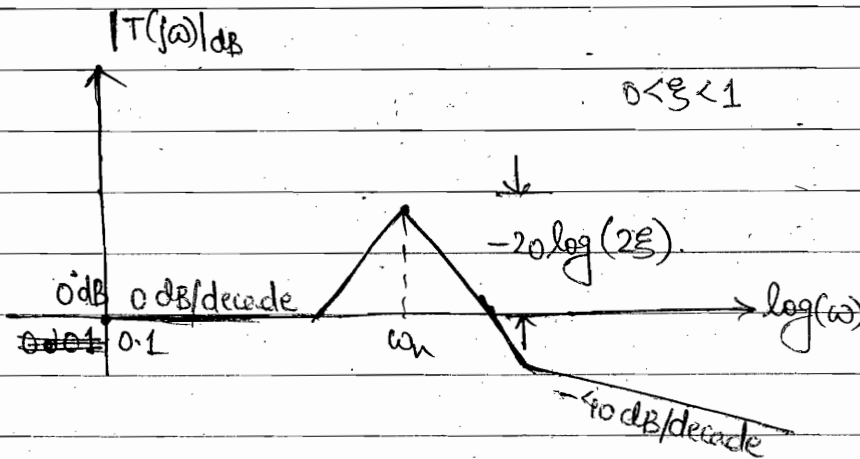 |T(jω)|dB
0<ξ<1
-20log(2ξ).
0dB 0 dB/decade
log(ω)
0.1
ωn
-40 dB/decade